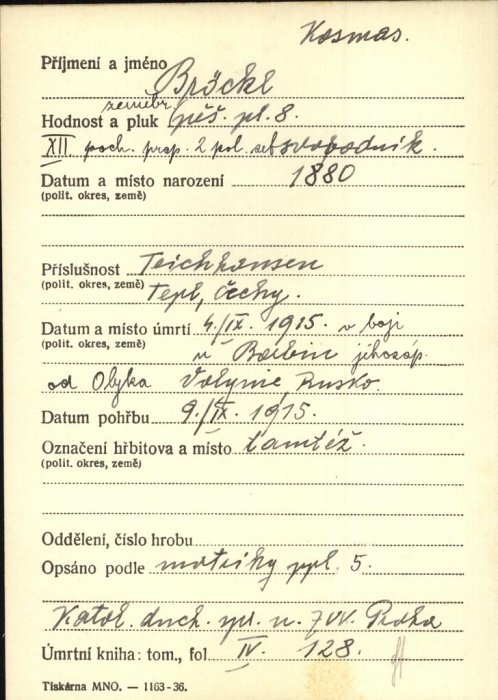 Kosmas.
Příjmení a jméno Bröckl
zeměbr.
Hodnost a pluk pěš. pl. 8.
XII poch. prap. 2 pol. set svobodník.
Datum a místo narození 1880
(polit. okres, země)
Příslušnost Teichhausen
(polit. okres, země) Tepl, Čechy.
Datum a místo úmrtí 4./IX. 1915. v boji
(polit. okres, země) u Balbin jihozáp.
od Olyka Volynie, Rusko.
Datum pohřbu 9./IX. 1915.
Označení hřbitova a místo tamtéž.
(polit. okres, země)
Oddělení, číslo hrobu
Opsáno podle matriky ppl. 5.
Katol. duch. spr. n. ZVV. Praha
Úmrtní kniha: tom., fol IV. 128.
Tiskárna MNO. — 1163-36.